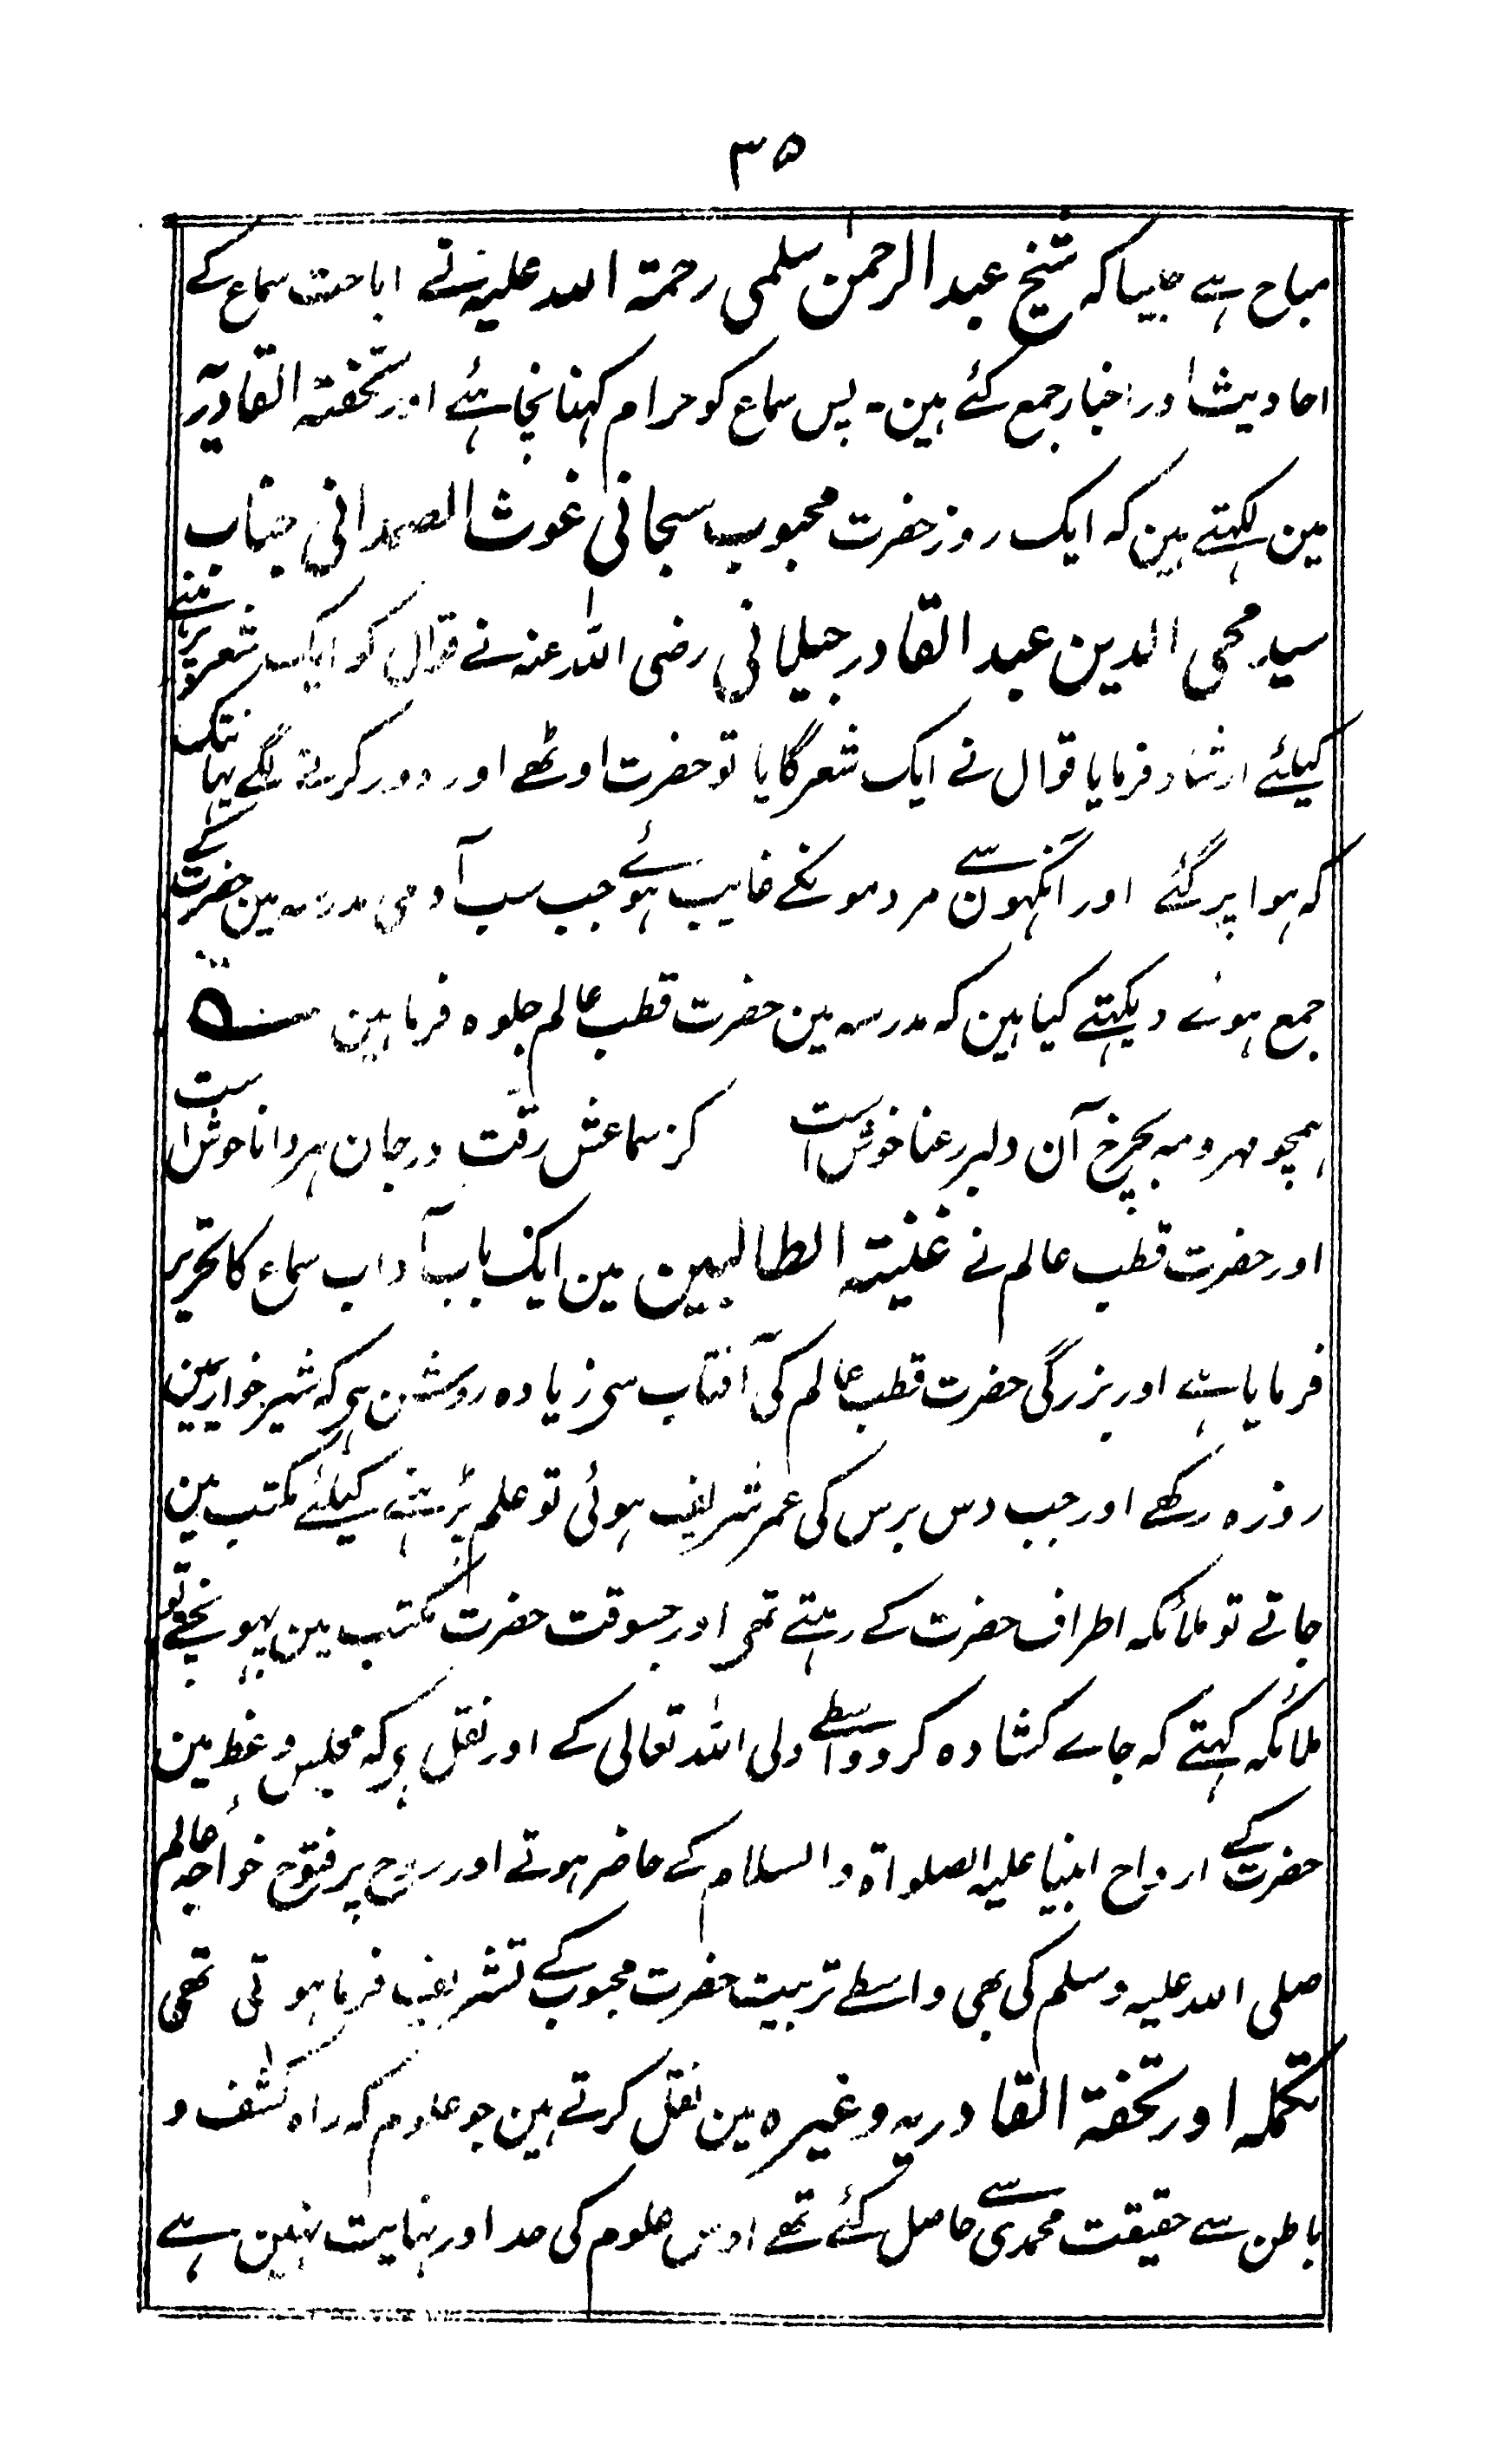 ۳۵
مباح ہے جیسا کہ شیخ عبد الرحمن سلمی رحمۃ اللہ علیہ نے اباحت سماع کے
احادیث اور اخبار جمع کئے ہین۔ پس سماع کو حرام کہنا نچاہئے اور تحفۃ القادریہ
مین لکہتے ہین کہ ایک روز حضرت محبوب سبحانی غوث الصمدانی جناب
سید محی الدین عبد القادر جیلانی رضی اللہ عنہ نے قوال کو ایک شعر پڑہنے
کیلئے ارشاد فرمایا قوال نے ایک شعر گایا تو حضرت اوٹھے اور دور کرنے لگے یہانتک
کہ ہوا پر گئے اور آنکہون سے مردمونکے غایب ہوئے جب سب آدمی مدرسہ مین حضرت کے
جمع ہوئے دیکہتے کیا ہین کہ مدرسہ مین حضرت قطب عالم جلوہ فرما ہین
ہمچو مہر و مہ بچرخ آن دلبر رعنا خوش است کز سماعش رقت در جان ہر دانا خوش است
اور حضرت قطب عالم نے غنیتہ الطالبین مین ایک باب آداب سماع کا تحریر
فرمایا ہے اور بزرگی حضرت قطب عالم کی آفتاب سی زیادہ روشن ہی کہ شیر خواری مین
روزہ رکھے اور جب دس برس کی عمر شریف ہوئی تو علم پڑہنے کیلئے مکتب مین
جاتے تو ملائکہ اطراف حضرت کے رہتے تھی اور جسوقت حضرت مکتب مین پہونچتے تو
ملائکہ کہتے کہ جاے کشادہ کرو واسطے ولی اللہ تعالی کے اور نقل ہی کہ مجلس وعظ مین
حضرت کے ارواح انبیا علیہ الصلواۃ والسلام کے حاضر ہوتے اور روح پر فتوح خواجہ عالم
صلی اللہ علیہ وسلم کی بھی واسطے تربیت حضرت محبوب کے تشریف فرما ہوتی تھی
تکملہ اور تحفۃ القادریہ وغیرہ مین نقل کرتے ہین جو علوم کہ راہ کشف و
باطن سے حقیقت محمدی سے حاصل کئے تھے اوس علوم کی حد اور نہایت نہین ہے